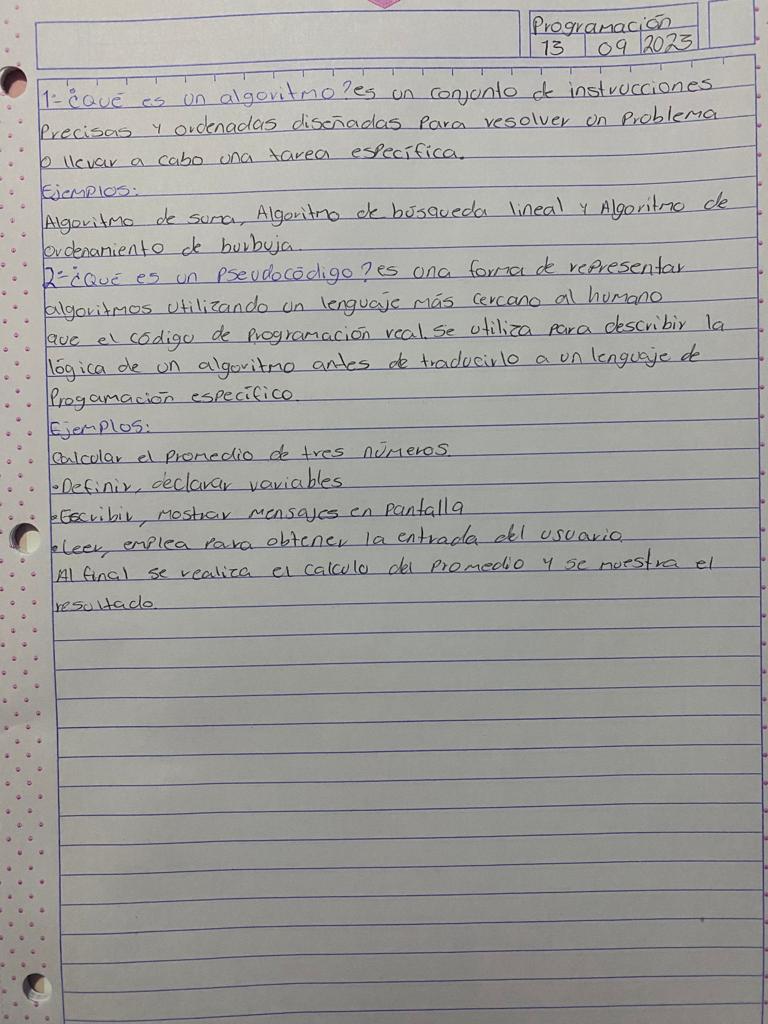 Programación
13 09 2023
1-¿Qué es un algoritmo? es un conjunto de instrucciones
Precisas y ordenadas diseñadas para resolver un Problema
o llevar a cabo una tarea específica.
Ejemplos:
Algoritmo de suma, Algoritmo de búsqueda lineal y Algoritmo de
ordenamiento de burbuja.
2-¿Qué es un Pseudocódigo? es una forma de representar
algoritmos utilizando un lenguaje más cercano al humano
que el código de programación real. Se utiliza para describir la
lógica de un algoritmo antes de traducirlo a un lenguaje de
Progamación específico.
Ejemplos:
Calcular el Promedio de tres números.
•Definir, declarar variables
•Escribir, mostrar mensajes en Pantalla
•Leer, emplea para obtener la entrada del usuario.
Al final se realiza el calculo del Promedio y se muestra el
resultado.